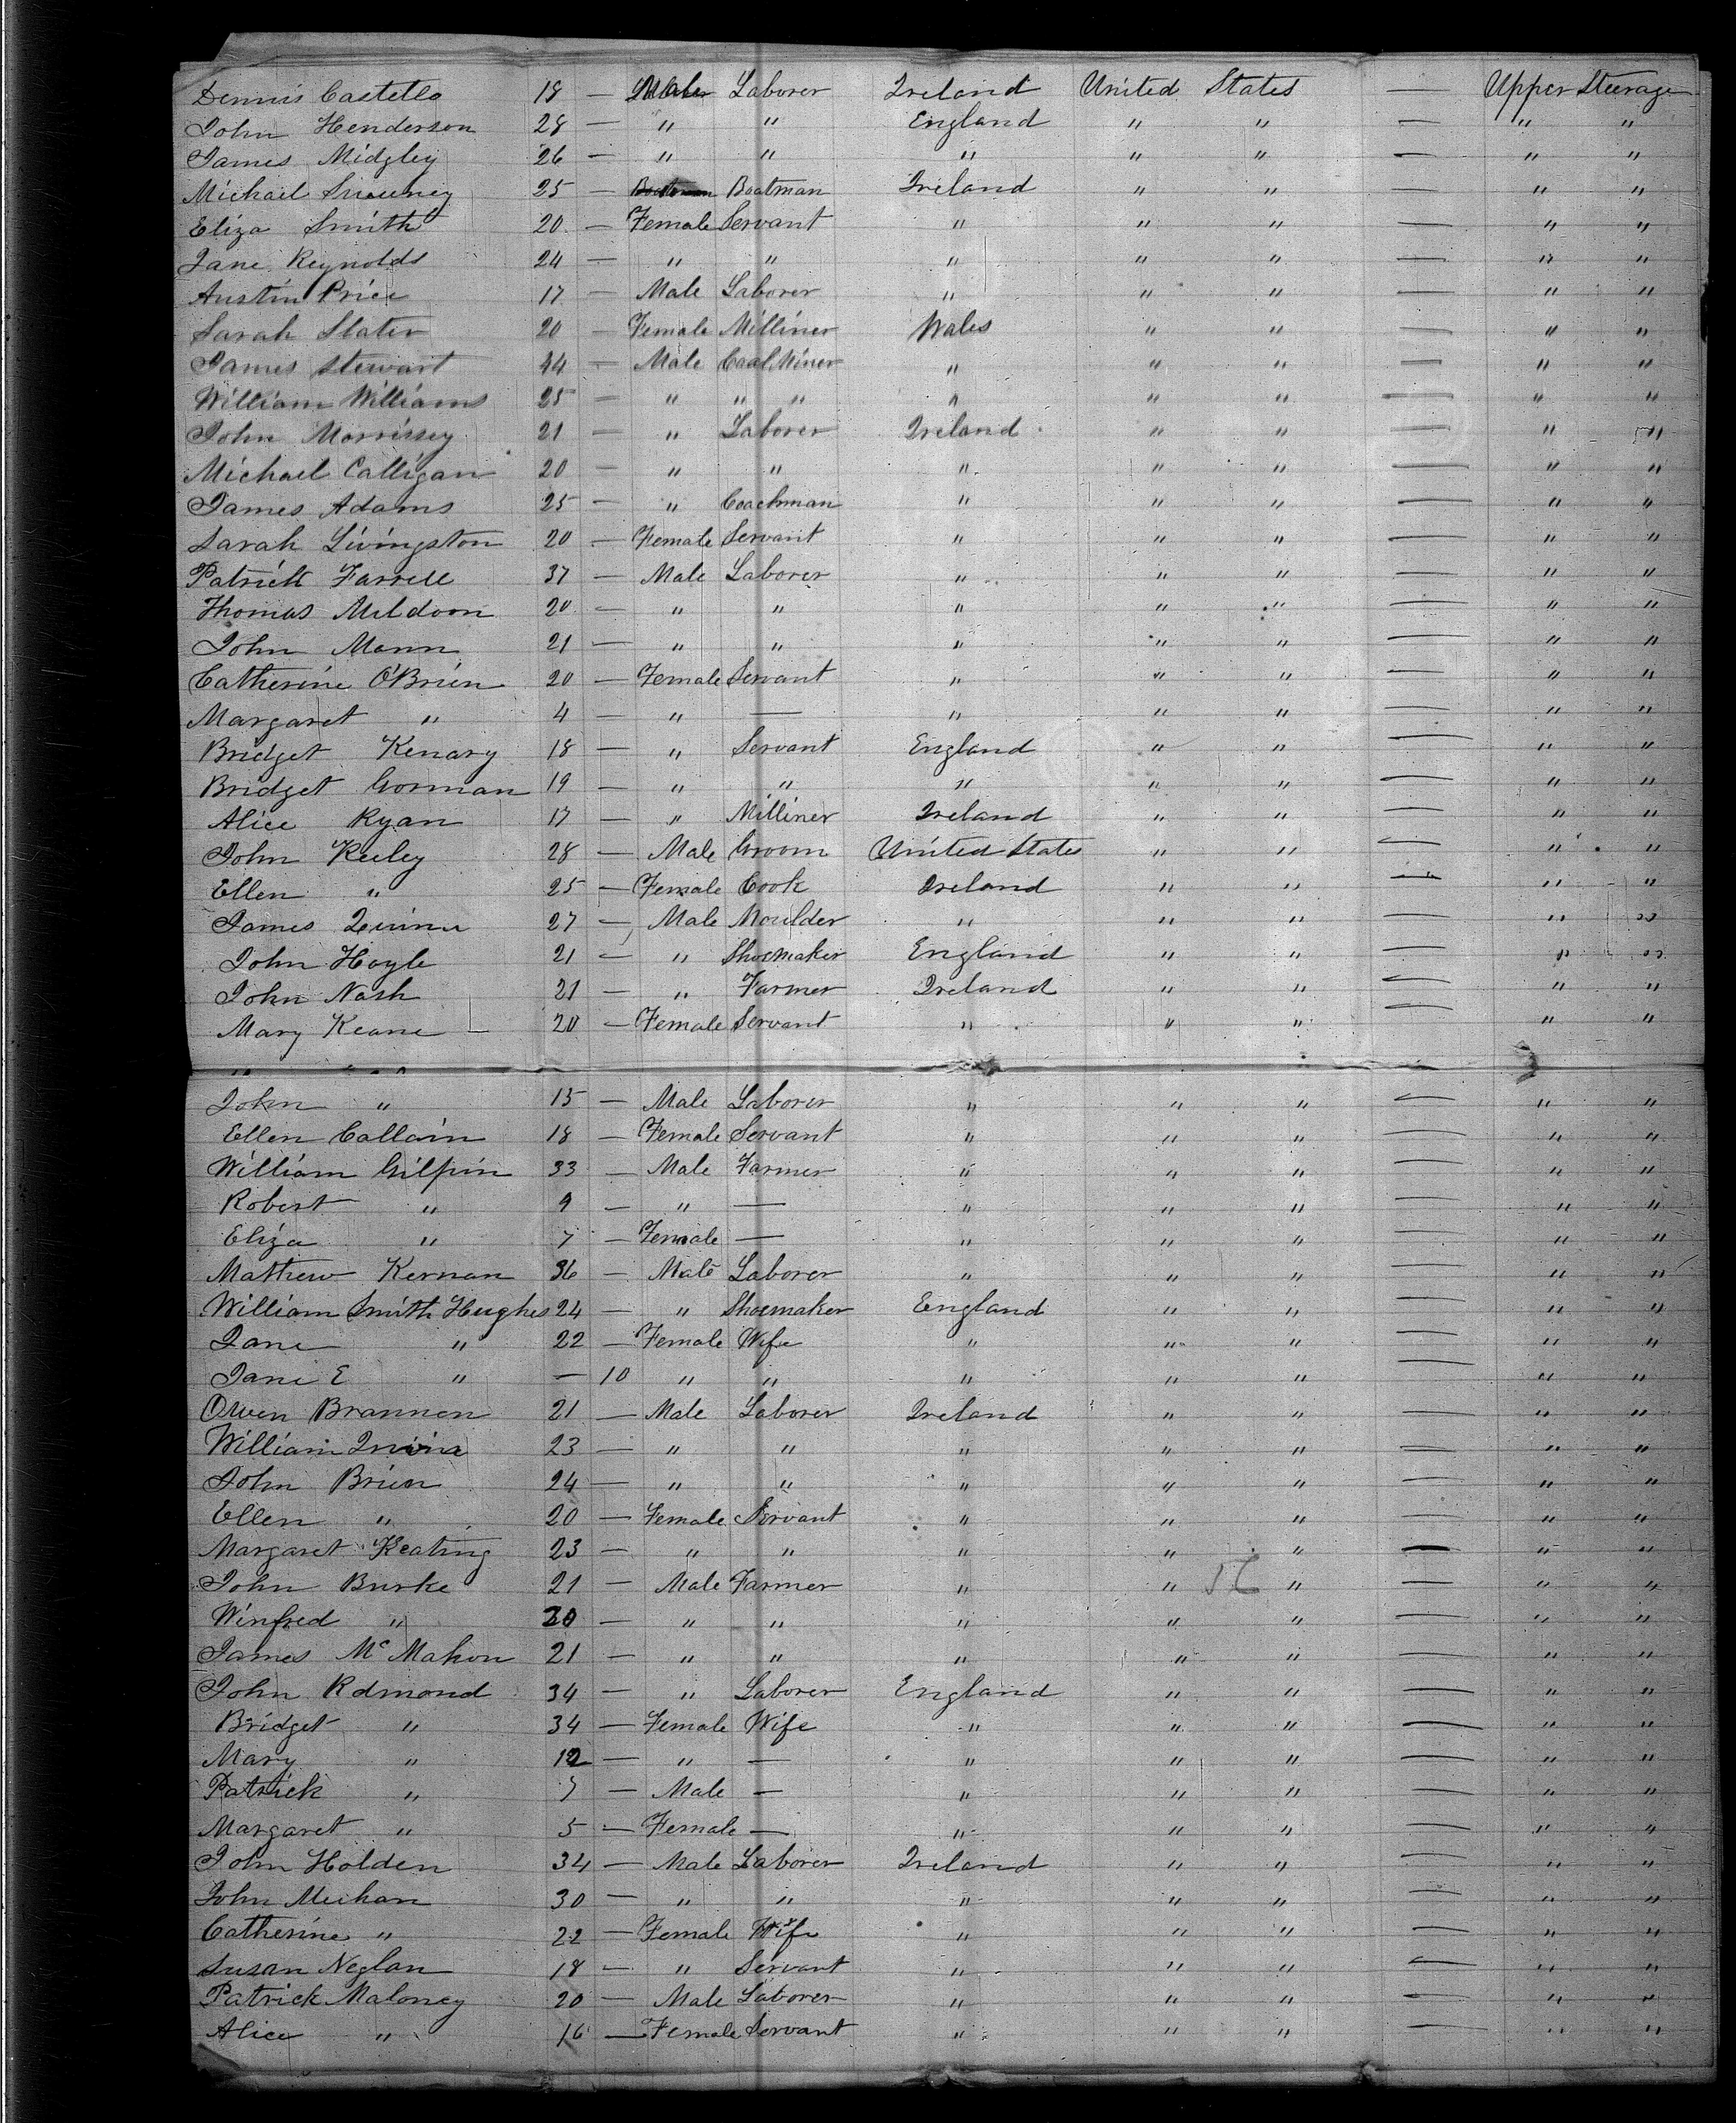 Dennis Castello 18 — Male Laborer Ireland United States — Upper Steerage
John Henderson 28 — " " England " " — " "
James Midgley 26 — " " " " " — " "
Michael 25 — Boatman Ireland " " — " "
Eliza Smith 20 — Female Servant " " " — " "
Jane Reynolds 24 — " " " " " — " "
Austin Price 17 — Male Laborer " " " — " "
Sarah Slater 20 — Female Milliner Wales " " — " "
James Stewart 44 — Male Coal Miner " " " — " "
William Williams 25 — " " " " " " — " "
John Morrissey 21 — " Laborer Ireland " " — " "
Michael Calligan 20 — " " " " " — " "
James Adams 25 — " Coachman " " " — " "
Sarah Livingston 20 — Female Servant " " " — " "
Patrick Farrell 37 — Male Laborer " " " — " "
Thomas Muldoon 20 — " " " " " — " "
John Mann 21 — " " " " " — " "
Catherine O'Brien 20 — Female Servant " " " — " "
Margaret " 4 — " — " " " — " "
Bridget Kenary 18 — " Servant England " " — " "
Bridget Gorman 19 — " " " " " — " "
Alice Ryan 17 — " Milliner Ireland " " — " "
John Keeley 28 — Male Groom United States " " — " "
Ellen " 25 — Female Cook Ireland " " — " "
James Quinn 27 — Male Moulder " " " — " "
John Hoyle 21 — " Shoemaker England " " — " "
John Nash 21 — " Farmer Ireland " " — " "
Mary Keane — 20 — Female Servant " " " — " "
John " 15 — Male Laborer " " " — " "
Ellen Callain 18 — Female Servant " " " — " "
William Gilpin 33 — Male Farmer " " " — " "
Robert " 9 — " — " " " — " "
Eliza " 7 — Female — " " " — " "
Mathew Kernan 36 — Male Laborer " " " — " "
William Smith Hughes 24 — " Shoemaker England " " — " "
Jane " 22 — Female Wife " " " — " "
Jane E " — 10 " " " " " — " "
Owen Brannen 21 — Male Laborer Ireland " " — " "
William 23 — " " " " " — " "
John Brien 24 — " " " " " — " "
Ellen " 20 — Female Servant " " " — " "
Margaret Keating 23 — " " " " " — " "
John Burke 21 — Male Farmer " " " — " "
Winfred " 20 — " " " " " — " "
James McMahon 21 — " " " " " — " "
John Rdmond 34 — " Laborer England " " — " "
Bridget " 34 — Female Wife " " " — " "
Mary " 12 — " — " " " — " "
Patrick " 7 — Male — " " " — " "
Margaret " 5 — Female — " " " — " "
John Holden 34 — Male Laborer Ireland " " — " "
John Meehan 30 — " " " " " — " "
Catherine " 22 — Female Wife " " " — " "
Susan Neglan 18 — " Servant " " " — " "
Patrick Maloney 20 — Male Laborer " " " — " "
Alice " 16 — Female Servant " " " — " "